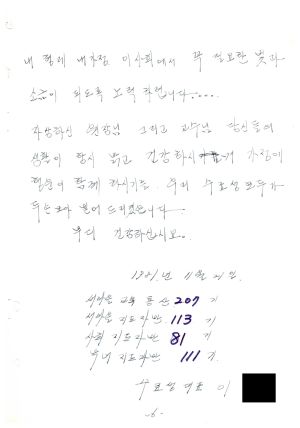 내 형제 내가정 이사회에서 꼭 필요한 빛과
소금이 되도록 노력 하렵니다.....
자상하신 원장님 그리고 교수님 당신들의
생활이 항시 밝고 건강하시며 가정에
행운이 함께 하시기를 우리 수료생 모두가
두손모아 빌어 드리겠습니다
부디 건강하십시요.
1981년 11월 21일.
새마을 교육 동산 207 기
새마을 지도자반 113 기
사회 지도자반 81 기
부녀 지도자반 111 기
수료생 대표 이
-6-